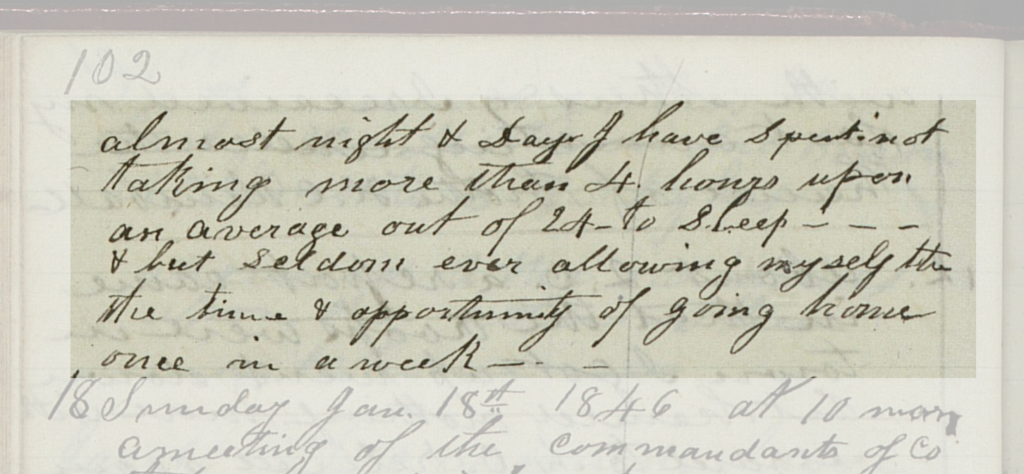 102
almost night & Day I have spent. not
taking more than 4. hours upon
an average out of 24 - to sleep - - -
& but seldom ever allowing myself the
the time & opportunity of going home
once in a week - - -
18 Sunday Jan. 18th 1846 at 10 morn
a meeting of the Commandants of Co